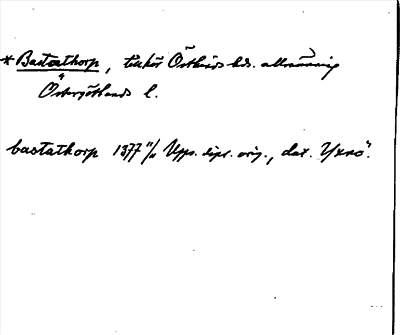 * Bastathorp, Östkinds hds. allmänning
Östergötlands l.
bastathorp 1377 11/11 Upps. dipl. orig., dat. Yxnö.